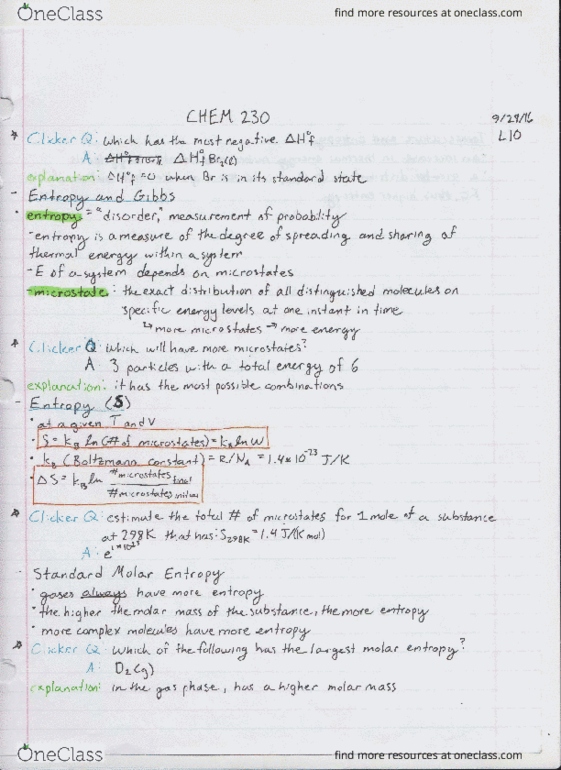 OneClass
find more resources at oneclass.com
CHEM 230
9/29/16
L10
* Clicker Q: which has the most negative ΔH°f
A: ΔH°f Br2(l)
explanation: ΔH°f = 0 when Br is in its standard state
- Entropy and Gibbs
· entropy = "disorder," measurement of probability
- entropy is a measure of the degree of spreading and sharing of
thermal energy within a system
- E of a system depends on microstates
- microstate: the exact distribution of all distinguished molecules on
specific energy levels at one instant in time
↳ more microstates → more energy
* Clicker Q: which will have more microstates?
A: 3 particles with a total energy of 6
explanation: it has the most possible combinations
- Entropy (S)
· at a given T and V
· S = kB ln(# of microstates) = kB ln W
· kB (Boltzmann constant) = R/NA = 1.4*10^-23 J/K
· ΔS = kB ln #microstates final
#microstates initial
* Clicker Q: estimate the total # of microstates for 1 mole of a substance
at 298K that has: S298K = 1.4 J/(K mol)
A: e^1*10^23
Standard Molar Entropy
· gases always have more entropy
· the higher the molar mass of the substance, the more entropy
· more complex molecules have more entropy
* Clicker Q: Which of the following has the largest molar entropy?
A: D2(g)
explanation: in the gas phase, has a higher molar mass
OneClass
find more resources at oneclass.com